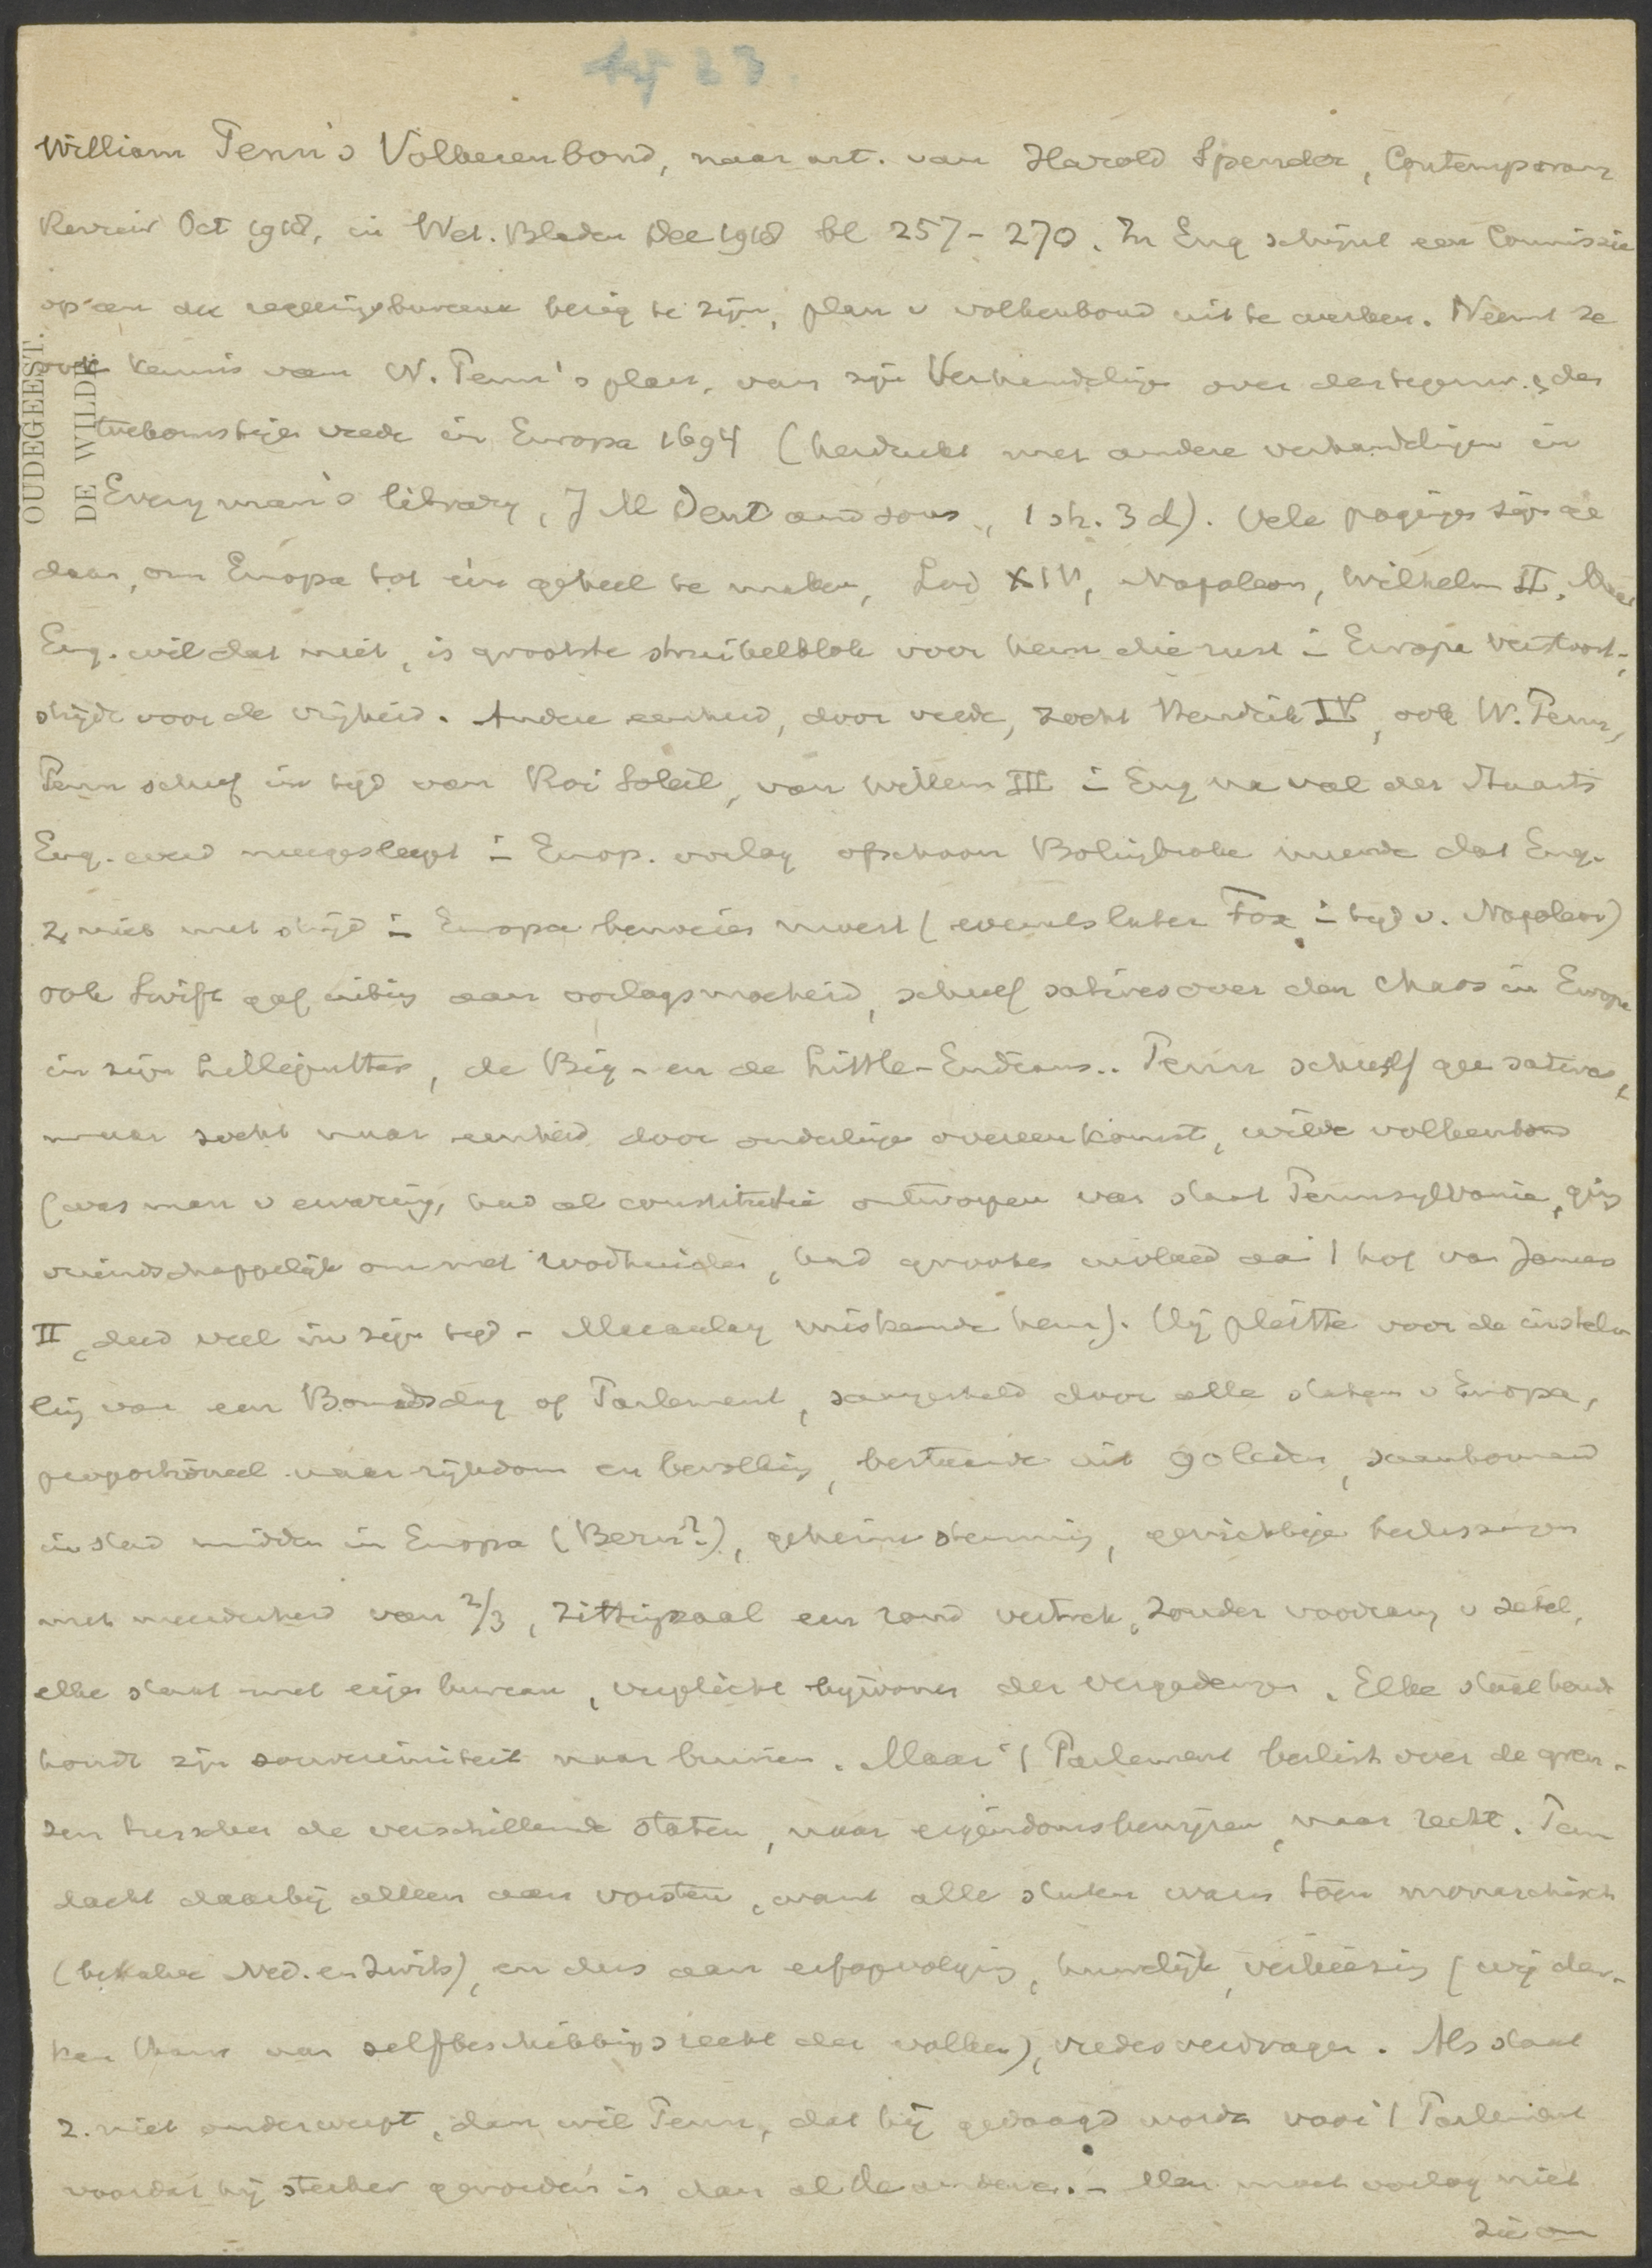 William Penn's Volkerenbond, naar art. van Harold Spender, Contemporary
Review Oct 1918, in Wet. Bladen Dec 1918 bl 257-270. In Eng schijnt een Commissie
op een der regeeringsbureaux bezig te zijn, plan v volkenbond uit te werken. Neemt ze
ook kennis van W. Penn's plan, van zijn Verhandeling over den tegenw. & den
toekomstigen vrede in Europa 1694 (herdrukt met andere verhandelingen in
Everyman's library, J M Dent and sons., 1 sh. 3 d). Vele pogingen zijn ge
daan, om Europa tot één geheel te maken, Lod XIV, Napoleon, Wilhelm II. Maar
Eng. wil dat niet, is grootste struikelblok voor hem die rust in Europa verstoort,
strijdt voor de vrijheid. Andere eenheid, door vrede, zocht Hendrik IV, ook W. Penn,
Penn schreef in tijd van Roi Soleil, van Willem III in Eng na val der Stuarts
Eng. werd meegesleept in Europ. oorlog ofschoon Bolingbroke meende dat Eng.
z niet met strijd in Europa bemoeien moest (evenals later Fox in tijd v. Napoleon)
ook Swift gaf uiting aan oorlogsmoeheid, schreef satires over den chaos in Europa
in zijn Lilliputters, de Big- en de Little-Endians.. Penn schreef gee satires,
maar zocht naar eenheid door onderlinge overeenkomst, wilde volkenbond
(was man v ervaring, had al constitutie ontworpen van staat Pennsylvania, ging
vriendschappelijk om met roodhuiden, had grooten invloed aan 't hof van James
II, deed veel in zijn tijd - Macaulay miskende hem). Hij pleitte voor de instel-
ling van een Bondsdag of Parlement, samengesteld door alle staten v Europa,
proportioneel naar rijkdom en bevolking, bestaande uit 90 leden, saamkomend
in stad midden in Europa (Bern?), geheime stemming, gewichtige beslissingen
met meerderheid van 2/3, zittingzaal een rond vertrek, zonder voorrang v zetel,
elke staat met eigen bureau, verplicht bijwonen der vergaderingen. Elke staat
houdt zijn souvereiniteit naar binnen. Maar 't Parlement beslist over de gren-
zen tusschen de verschillende staten, naar eigendomsbewijzen, naar recht. Penn
dacht daarbij alleen aan vorsten, want alle staten waren toen monarchisch
(behalve Ned. en Zwits), en dus aan erfopvolging, huwelijk, verkiezing (wij den-
ken thans aan zelfbeschikkingsrecht der volken), vredesverdragen. Als staat
z. niet onderwerpt, dan wil Penn, dat hij gedaagd worde voor 't Parlement
voordat hij sterker geworden is dan al de anderen. - Men moet oorlog niet
zie om
OUDEGEEST.
DE WILDE